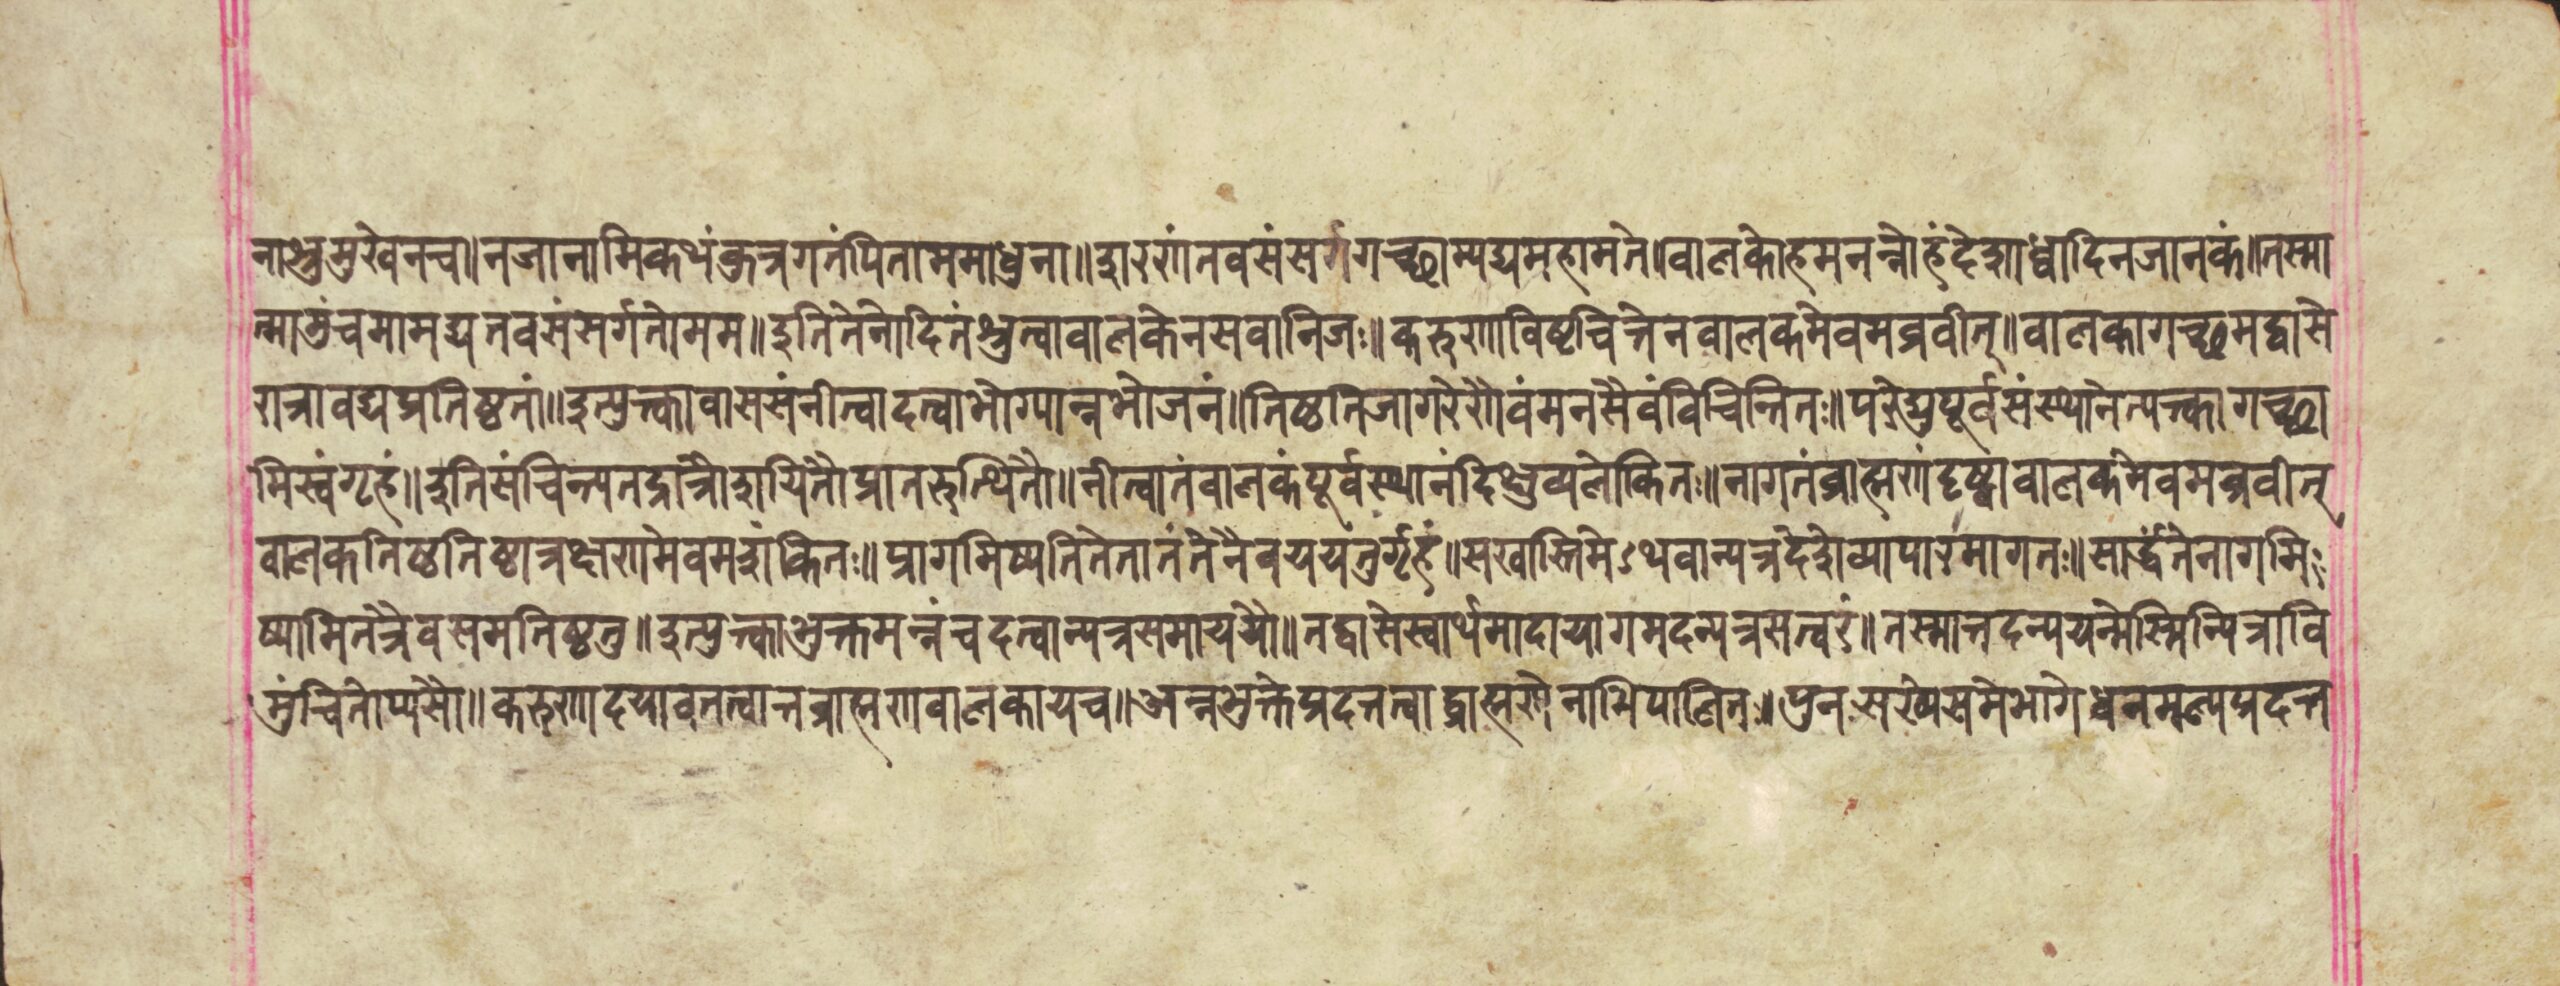 नाश्रुमुखेनच॥नजानामिकथंकुत्रगतंपितामममाधुना॥शरणंतवसंसर्गगच्छाम्यद्यमहामते॥वालकोहमनन्नोहंदेशाध्वादिनजानकं॥तस्मा
न्मामुंचमामद्यतवसंसर्गतोमम॥इतितेनोदितंश्रुत्वावालकेनसवानिजः॥करुणाविष्टचित्तेनवालकमेवमव्रवीत्॥वालकागच्छमद्वासे
रात्रावद्यप्रतिष्ठतां॥इत्युक्त्वावाससंनीत्वादत्वाभोग्यान्नभोजनं॥तिष्ठतिजागरेणैवंमनसैवंविचिन्तितः॥परेद्युपूर्वसंस्थानेत्यक्त्वागच्छा
मिस्वंगृहं॥इतिसंचिन्त्यतद्रात्रौशयितौप्रातरुत्थितौ॥नीत्वातंवालकंपूर्वस्थानंदिक्षुव्यलोकितः॥नागतंव्राह्मणंदृष्ट्वावालकमेवमव्रवीत्
वालकतिष्ठतिष्ठात्रक्षणमेवमशंकितः॥प्रागमिष्यतितेतातंतेनैवययतुर्गृहं॥सखास्तिमेऽथवान्यत्रदेशेव्यापारमागतः॥सार्द्धंतेनागमि
ष्यामितत्रैवसमतिष्ठतु॥इत्युक्त्वाभुक्तमन्नंचदत्वान्यत्रसमाययौ॥तद्वासेस्वार्थमादायागमदन्यत्रसत्वरं॥तस्मात्तदन्ययन्मेस्मिन्पित्रावि
मुंचितोप्यसौ॥करुणादयावतत्वात्तव्राह्मणवालकायच॥अन्नभुक्तेप्रदत्तत्वाद्व्राह्मणेनाभिपालितः॥पुनःसख्येसमेभागेधनमल्पप्रदत्त